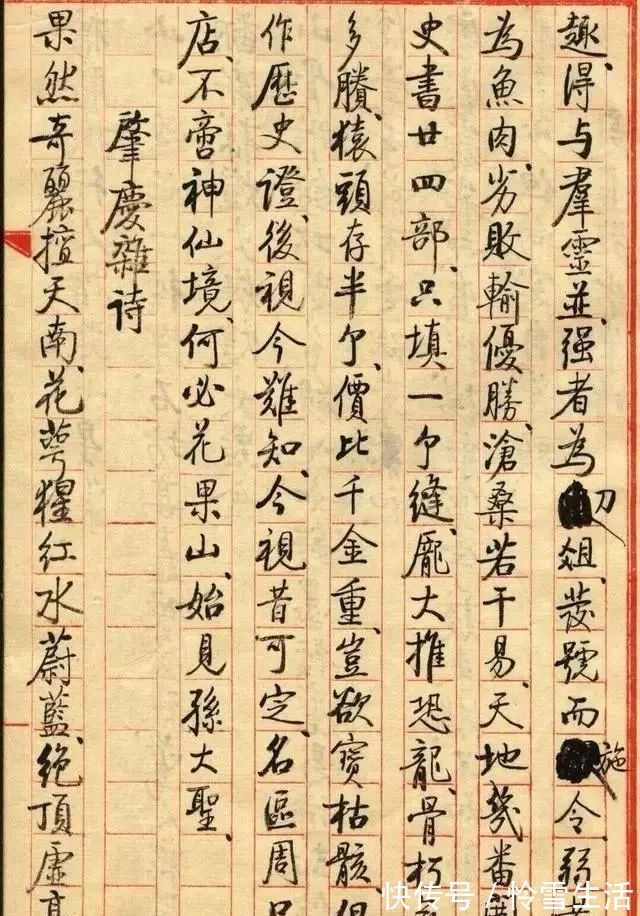 趣、得与羣靈並、强者為刀俎、發號而施令、弱
為魚肉、劣敗輸優勝、滄桑若干易、天地幾番
史書廿四部、只填一个縫、龐大推恐龍、骨朽
多賸、猿頭存半个、價比千金重、豈欲寶枯骸、但
作歷史證、後視今難知、今視昔可定、名區周
店、不啻神仙境、何必花果山、始見孫大聖、
肇慶雜诗
果然奇麗擅天南、花萼猩紅水蔚藍、絶頂虚
快传号／怜雪生活